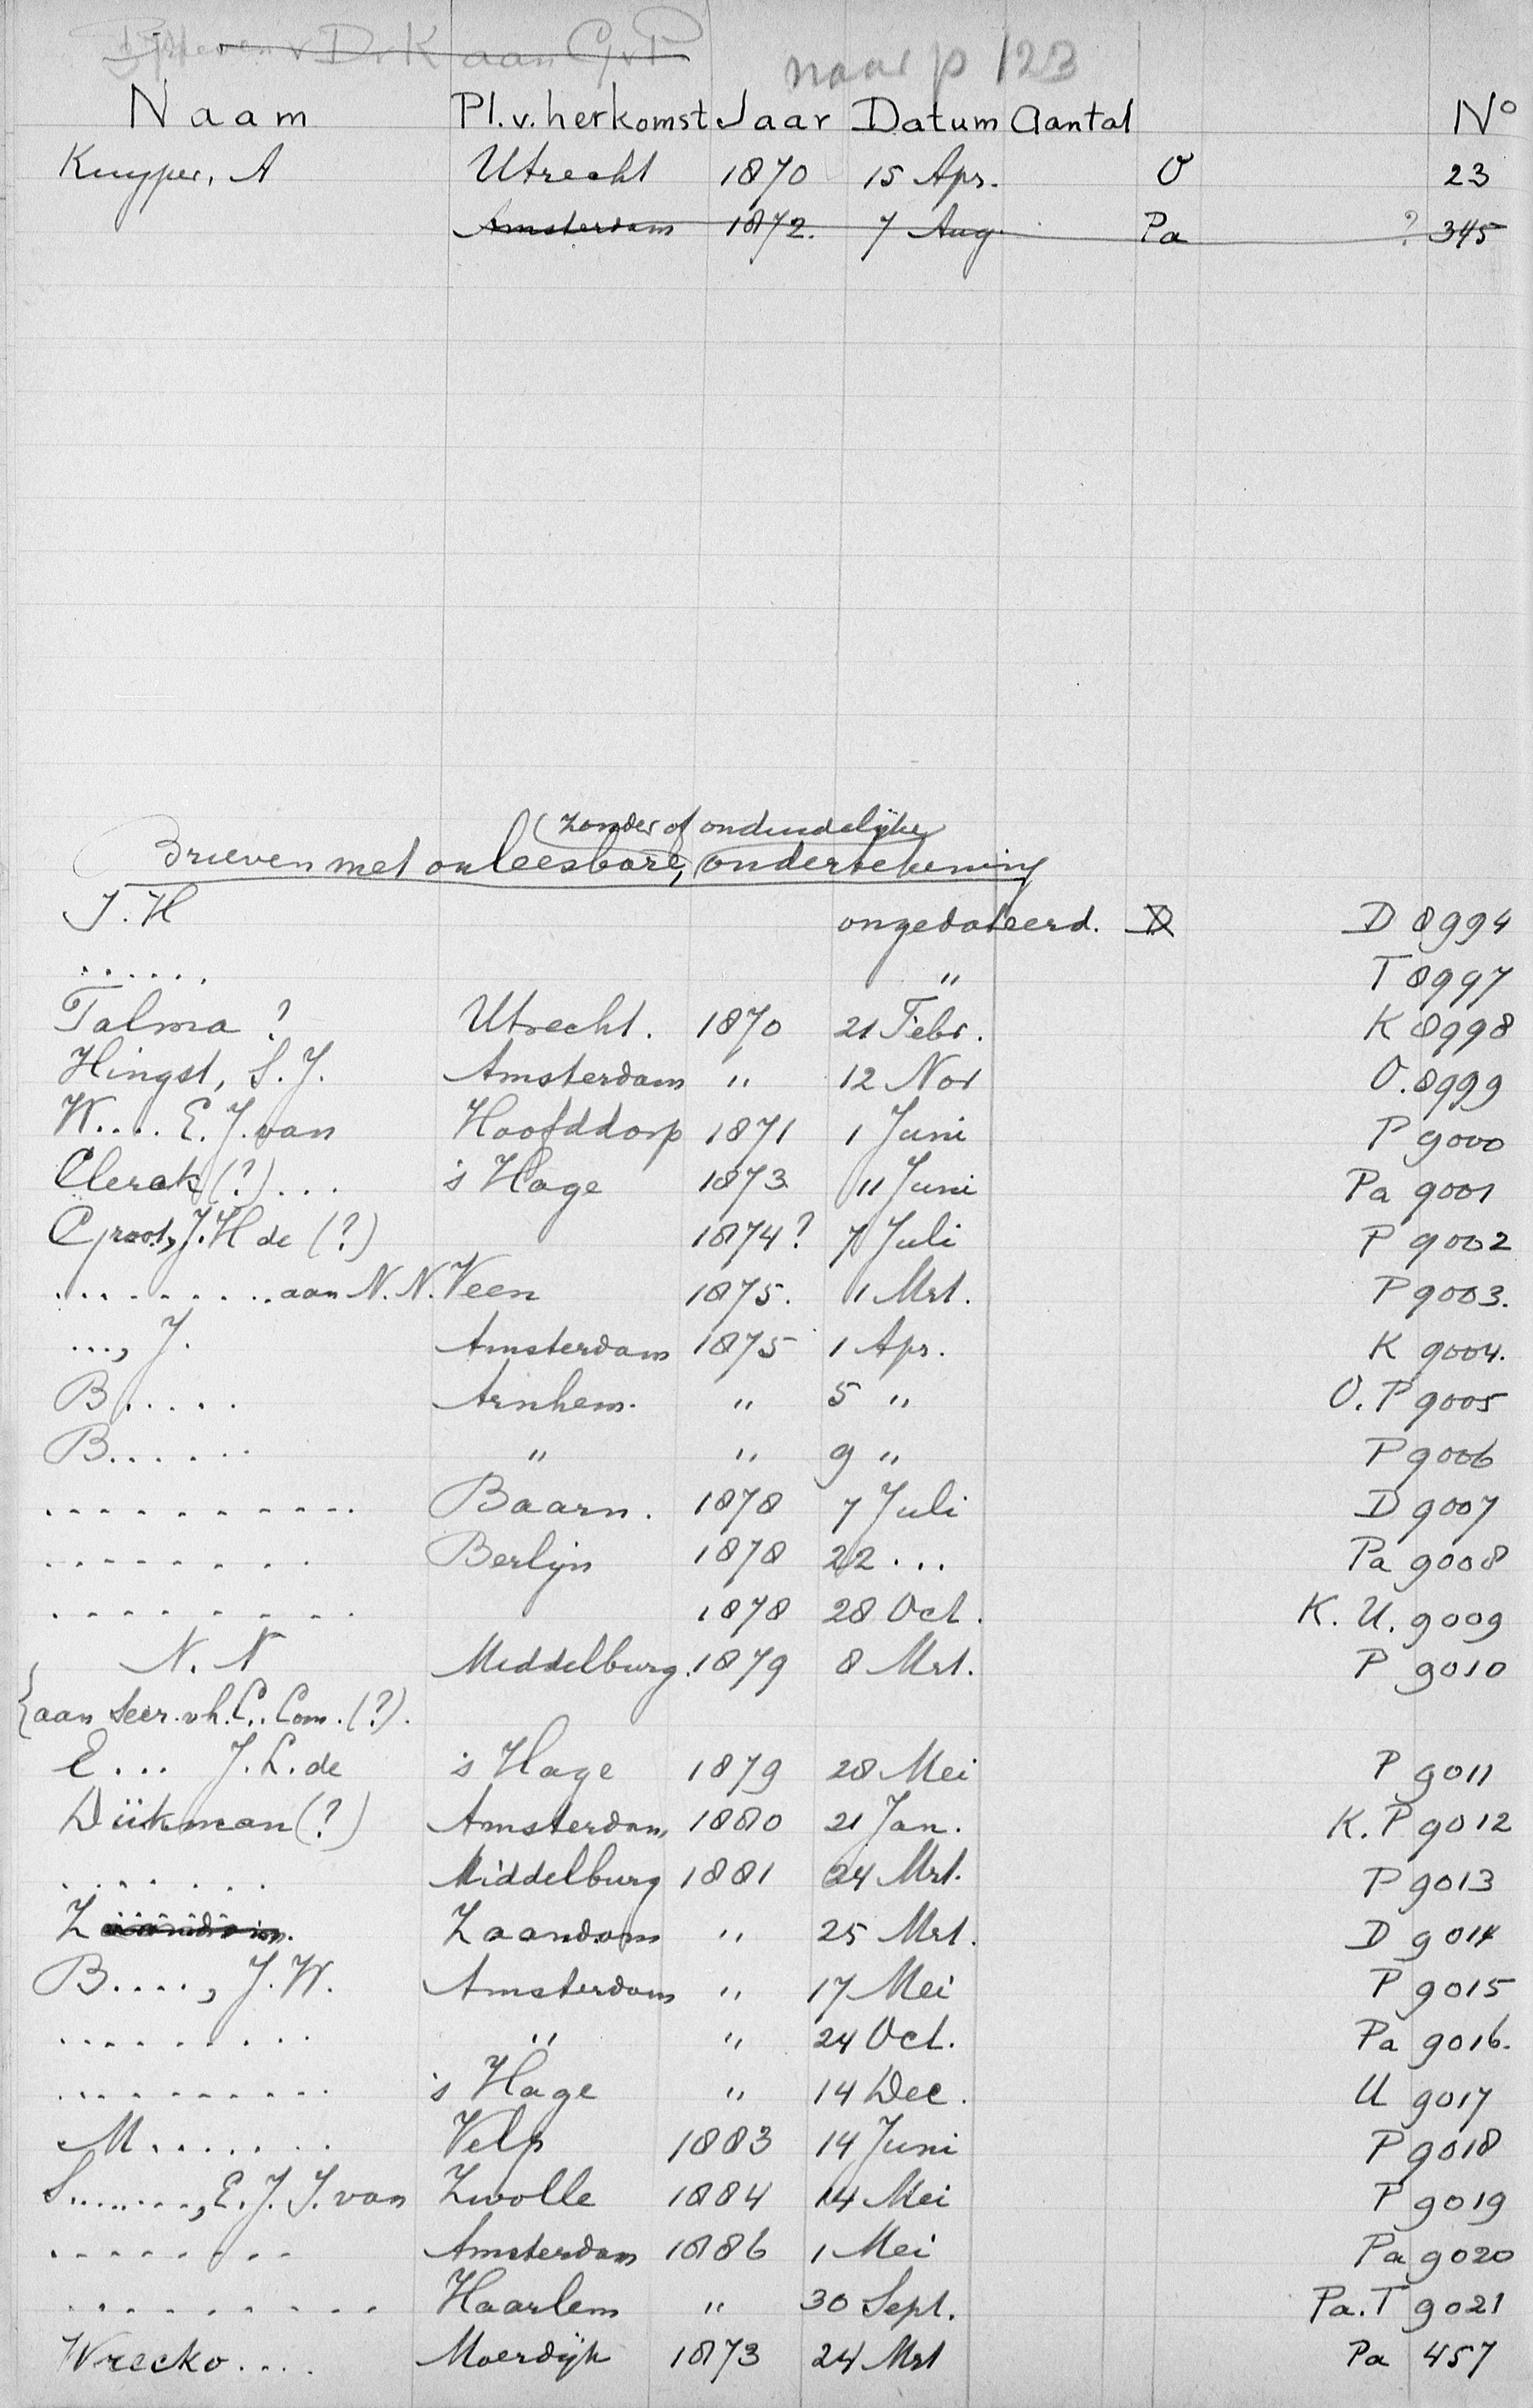 Brieven v Dr K aan G v P
naar p 123
Naam Pl. v. herkomst Jaar Datum Aantal No
Kuyper, A Utrecht 1870 15 Apr. O 23
Amsterdam 1872. 7 Aug. Pa ? 345
(zonder of onduidelijke
Brieven met onleesbare, ondertekening
J. H ongedateerd. D D 8994
...... " T 8997
Talma ? Utrecht. 1870 21 Febr. K 8998
Hingst, S. J. Amsterdam " 12 Nov O. 8999
W.... E. J. van Hoofddorp 1871 1 Juni P 9000
Clerak (?)... 's Hage 1873 11 Juni Pa 9001
Groot, J. H de (?) 1874? 7 Juli P 9002
......... aan N. N. Veen 1875. 1 Mrt. P 9003.
..., J. Amsterdam 1875 1 Apr. K 9004.
B..... Arnhem. " 5 " O. P 9005
B...... " " 9 " P 9006
.......... Baarn. 1878 7 Juli D 9007
........ Berlijn 1878 22... Pa 9008
......... 1878 28 Oct. K. U. 9009
N. N Middelburg. 1879 8 Mrt. P 9010
{aan Secr. v h. C. Com. (?).
E... J. L. de 's Hage 1879 28 Mei P 9011
Dijkman (?) Amsterdam 1880 21 Jan. K. P 9012
....... Middelburg 1881 24 Mrt. P 9013
Zaandam. Zaandam " 25 Mrt. D 9014
B...., J. W. Amsterdam " 17 Mei P 9015
......... " " 24 Oct. Pa 9016.
......... 's Hage " 14 Dec. U 9017
M....... Velp 1883 14 Juni P 9018
S......., E. J. J. van Zwolle 1884 14 Mei P 9019
........ Amsterdam 1886 1 Mei Pa 9020
......... Haarlem " 30 Sept. Pa. T 9021
Wrecko.... Moerdijk 1873 24 Mrt Pa 457